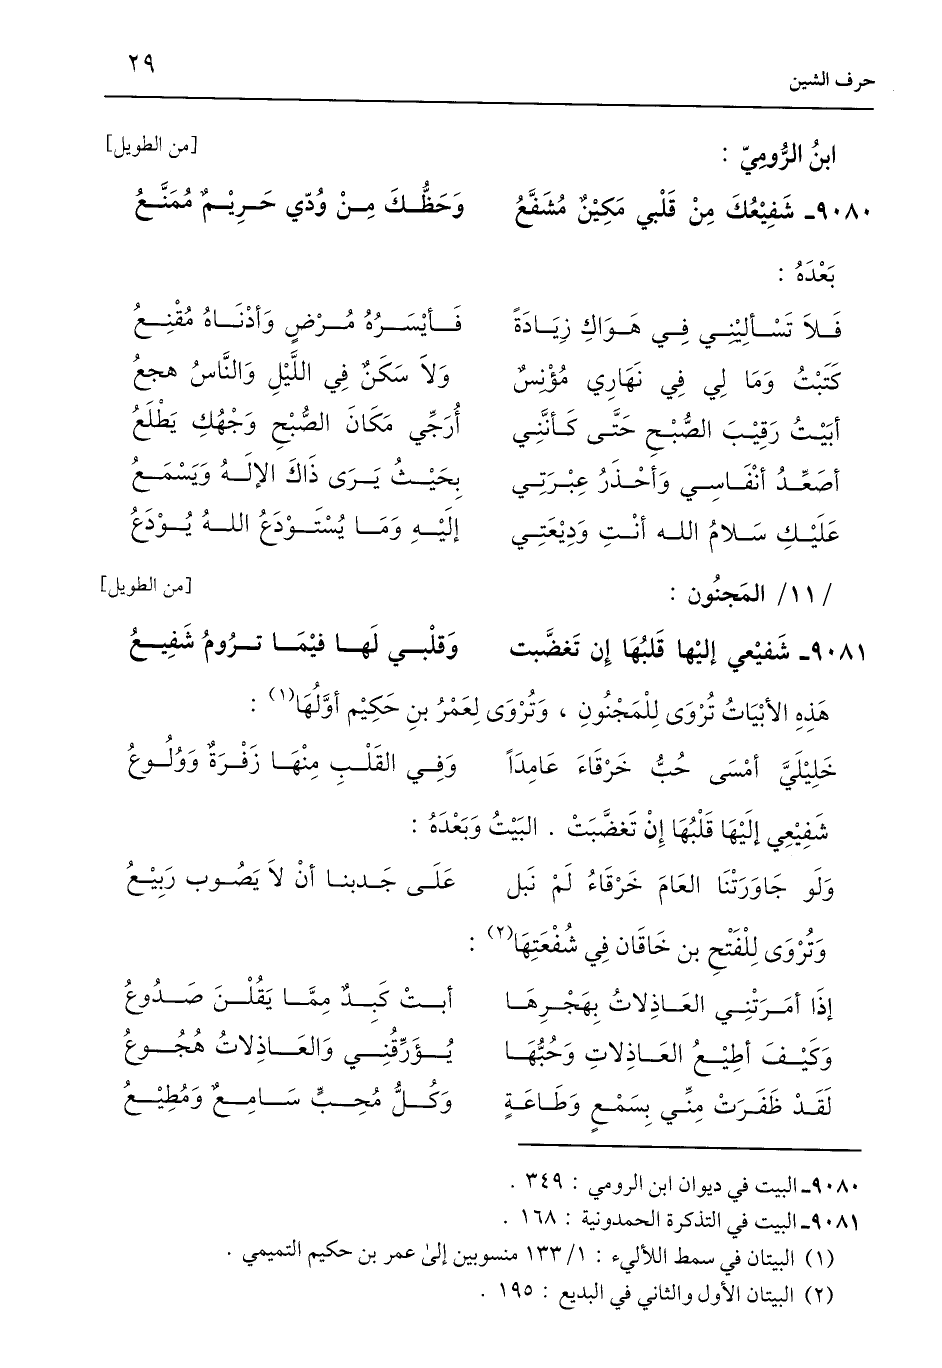 حرف الشين ٢٩
ابنُ الرُّومِيّ : [من الطويل]
٩٠٨٠ـ شَفِيْعُكَ مِنْ قَلْبِي مَكِيْنٌ مُشَفَّعُ وَحَظُّكَ مِنْ وُدِّي حَرِيْمٌ مُمَنَّعُ
بَعْدَهُ :
فَلاَ تَسْأَلِيْنِي فِي هَوَاكِ زِيَادَةً فَأَيْسَرُهُ مُرْضٍ وَأَدْنَاهُ مُقْنِعُ
كَتَبْتُ وَمَا لِي فِي نَهَارِي مُؤْنِسٌ وَلاَ سَكَنٌ فِي اللَّيْلِ وَالنَّاسُ هجعُ
أَبَيْتُ رَقِيْبَ الصُّبْحِ حَتَّى كَأَنَّنِي أُرَجِّي مَكَانَ الصُّبْحِ وَجْهُكِ يَطْلَعُ
أصَعِّدُ أنْفَاسِي وَأَحْذَرُ عِبْرَتِي بِحَيْثُ يَرَى ذَاكَ الإِلَهُ وَيَسْمَعُ
عَلَيْكِ سَلامُ الله أنْتِ وَدِيْعَتِي إِلَيْهِ وَمَا يُسْتَوْدَعُ اللهُ يُوْدَعُ
/١١/ المَجنُون : [من الطويل]
٩٠٨١ـ شَفِيْعي إليْها قَلبُهَا إن تَغضَّبت وَقلْبي لَها فيْمَا ترُومُ شَفِيعُ
هَذِهِ الأَبْيَاتُ تُرْوَى لِلْمَجْنُونِ ، وَتُرْوَى لِعَمْرُ بن حَكِيْمٍ أوَّلُهَا(١) :
خَلِيْلَيَّ أمْسَى حُبُّ خَرْقَاءَ عَامِدَاً وَفِي القَلْبِ مِنْهَا زَفْرَةٌ وَوُلُوعُ
شَفِيْعِي إِلَيْهَا قَلْبُهَا إِنْ تَغضَّبَتْ . البَيْتُ وَبَعْدَهُ :
وَلَو جَاوَرَتْنَا العَامَ خَرْقَاءُ لَمْ نَبل عَلَى جَدبنا أنْ لاَ يَصُوب رَبِيْعُ
وَتُرْوَى لِلْفَتْحِ بن خَاقَان فِي شُفْعَتِهَا(٢) :
إِذَا أمَرَتْنِي العَاذِلاتُ بِهَجْرِهَا أبتْ كَبِدٌ مِمَّا يَقُلْنَ صَدُوعُ
وَكَيْفَ أطِيْعُ العَاذِلاتِ وَحُبُّهَا يُؤَرِّقُنِي وَالعَاذِلاتُ هُجُوعُ
لَقَدْ ظَفَرَتْ مِنِّي بِسَمْعٍ وَطَاعَةٍ وَكُلُّ مُحِبٍّ سَامِعٌ وَمُطِيْعُ
٩٠٨٠ـ البيت في ديوان ابن الرومي : ٣٤٩ .
٩٠٨١ـ البيت في التذكرة الحمدونية : ١٦٨ .
(١) البيتان في سمط اللآليء : ١/ ١٣٣ منسوبين إلى عمر بن حكيم التميمي .
(٢) البيتان الأول والثاني في البديع : ١٩٥ .